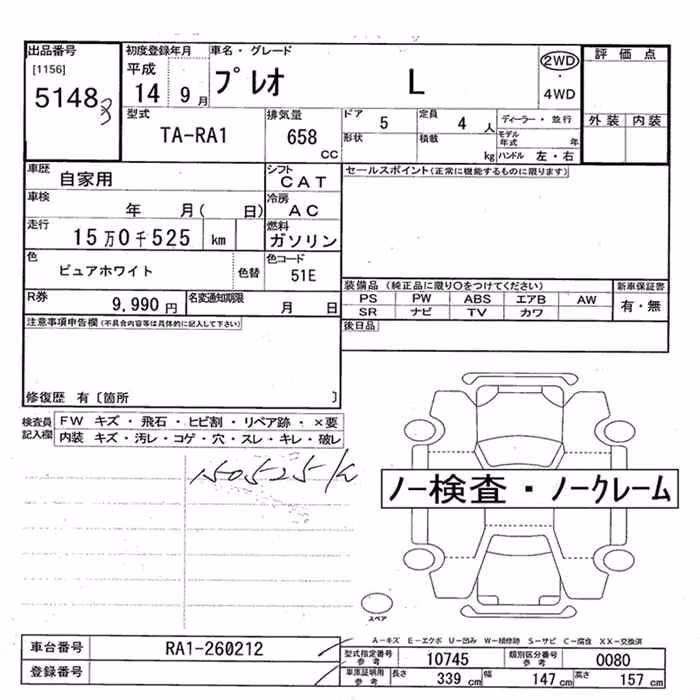 出品番号
[1156]
5148
初度登録年月
平成
14 9月
車名・グレード
プレオ L
2WD
・
4WD
評価点
外装 内装
型式
TA-RA1
排気量
658
cc
ドア 5
定員 4 人
ディーラー・並行
形状
積載 kg
モデル年式 年
ハンドル 左・右
車歴
自家用
シフト
CAT
セールスポイント(正常に機能するものに限ります)
車検
年 月( 日)
冷房
AC
走行
15万0千525 km
燃料
ガソリン
色
ピュアホワイト
色替
色コード
51E
装備品 (純正品に限り○をつけてください)
新車保証書
PS PW ABS エアB AW
有・無
SR ナビ TV カワ
R券
9,990 円
名変通知期限
月 日
後日品
注意事項申告欄(不具合内容等は具体的に記入して下さい)
修復歴 有〔箇所 〕
検査員
記入欄
FW キズ・飛石・ヒビ割・リペア跡・×要
内装 キズ・汚レ・コゲ・穴・スレ・キレ・破レ
150525k
ノー検査・ノークレーム
スペア
A-キズ E-エクボ U-凹み W-補修跡 S-サビ C-腐食 XX-交換済
車台番号 RA1-260212
登録番号
型式指定番号
参考
10745
類別区分番号
参考
0080
車庫証明用
参考
長さ 339 cm 幅 147 cm 高さ 157 cm